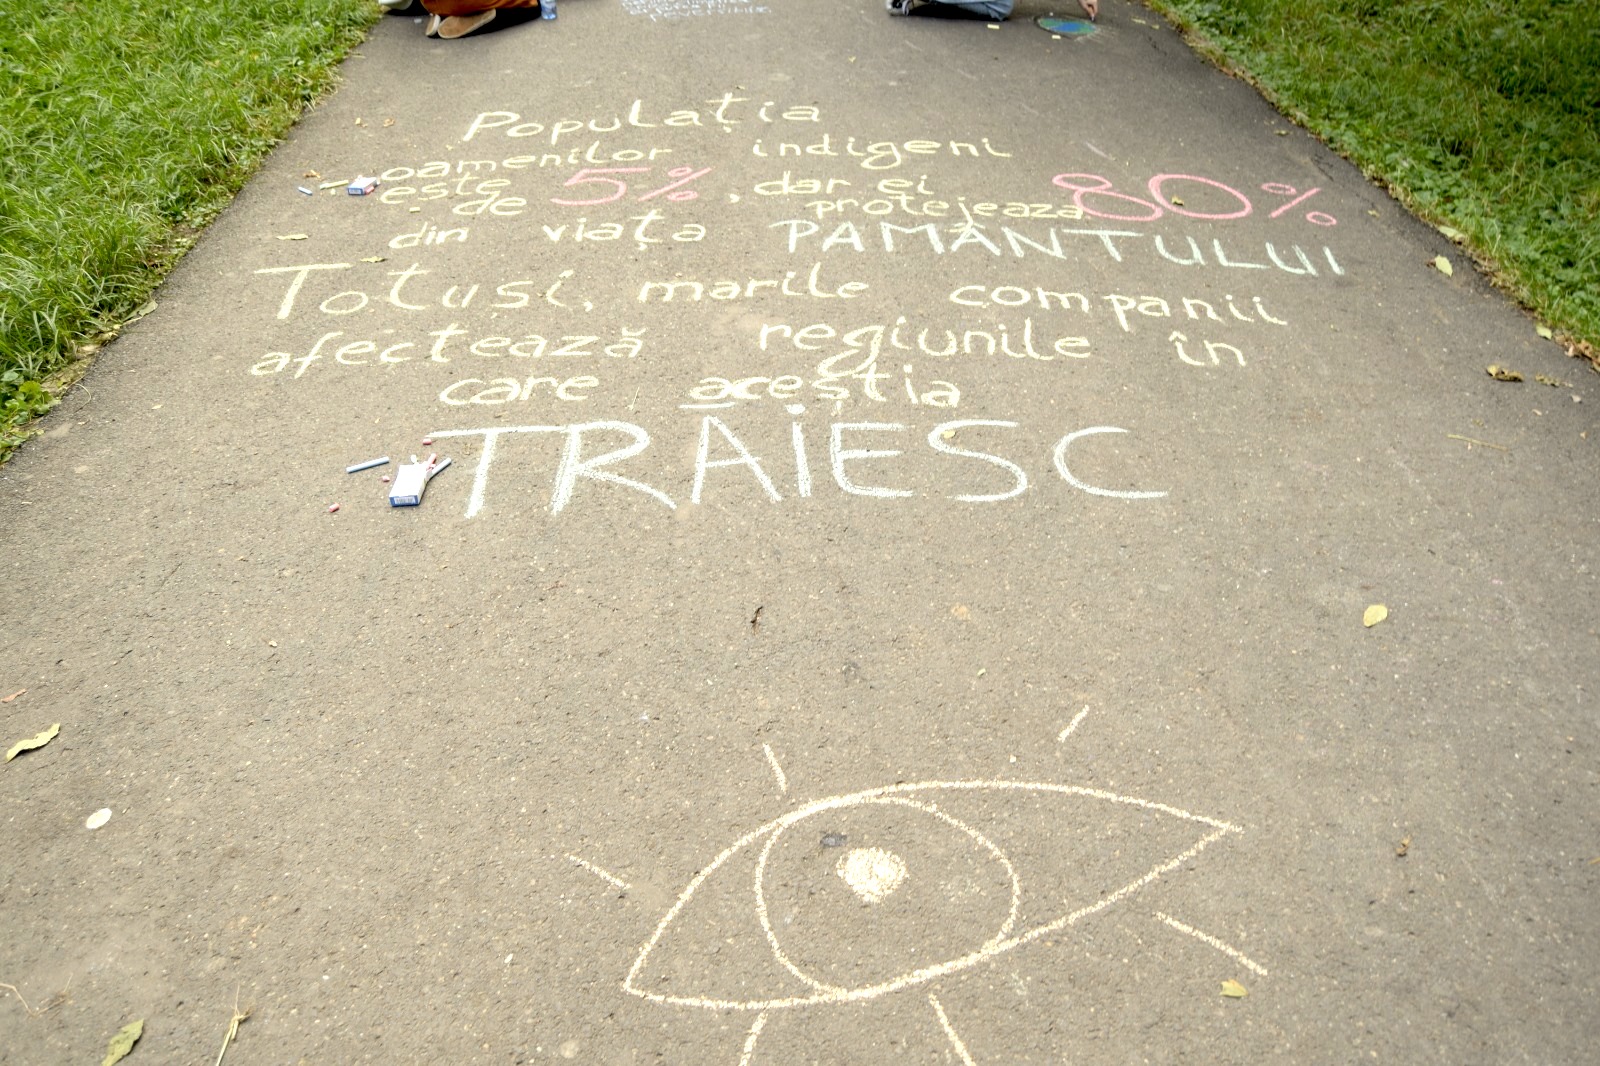 Populația
oamenilor indigeni
este de 5%, dar ei protejeaza 80%
din viața PAMÂNTULUI
Totusi, marile companii
afectează regiunile în
care aceștia
TRĂIESC